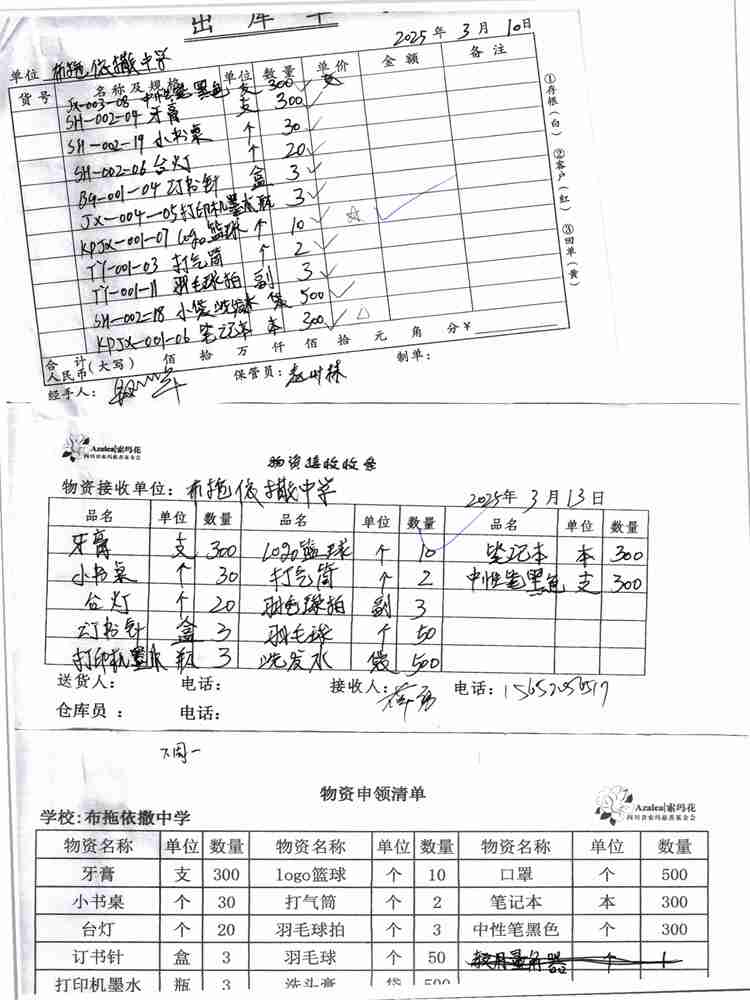 出库单
2025年 3月 10日
单位 布拖依撒中学
货号 名称及规格 单位 数量 单价 金额 备注
JX-003-08 中性笔黑色 支 300
SH-002-04 牙膏 支 300
SH-002-19 小书桌 个 30
SH-002-06 台灯 个 20
BG-001-04 订书针 盒 3
JX-004-05 打印机墨水 瓶 3
KPJX-001-07 logo篮球 个 10
TY-001-03 打气筒 个 2
TY-001-11 羽毛球拍 副 3
SH-002-18 小袋洗发水 袋 500
KPJX-001-06 笔记本 本 300
合计人民币(大写) 佰 拾 万 仟 佰 拾 元 角 分¥
经手人: 保管员: 制单:
①存根(白) ②客户(红) ③回单(黄)
Azalea|索玛花
四川省索玛慈善基金会
物资接收收条
物资接收单位: 布拖依撒中学 2025年 3月 13日
品名 单位 数量 品名 单位 数量 品名 单位 数量
牙膏 支 300 logo篮球 个 10 笔记本 本 300
小书桌 个 30 打气筒 个 2 中性笔黑色 支 300
台灯 个 20 羽毛球拍 副 3
订书针 盒 3 羽毛球 个 50
打印机墨水 瓶 3 洗发水 袋 500
送货人: 电话: 接收人: 电话:
仓库员 : 电话:
下周一
物资申领清单
Azalea|索玛花
四川省索玛慈善基金会
学校:布拖依撒中学
物资名称 单位 数量 物资名称 单位 数量 物资名称 单位 数量
牙膏 支 300 logo篮球 个 10 口罩 个 500
小书桌 个 30 打气筒 个 2 笔记本 本 300
台灯 个 20 羽毛球拍 个 3 中性笔黑色 个 300
订书针 盒 3 羽毛球 个 50 教具量角器 个 1
打印机墨水 瓶 3 洗头膏 袋 500